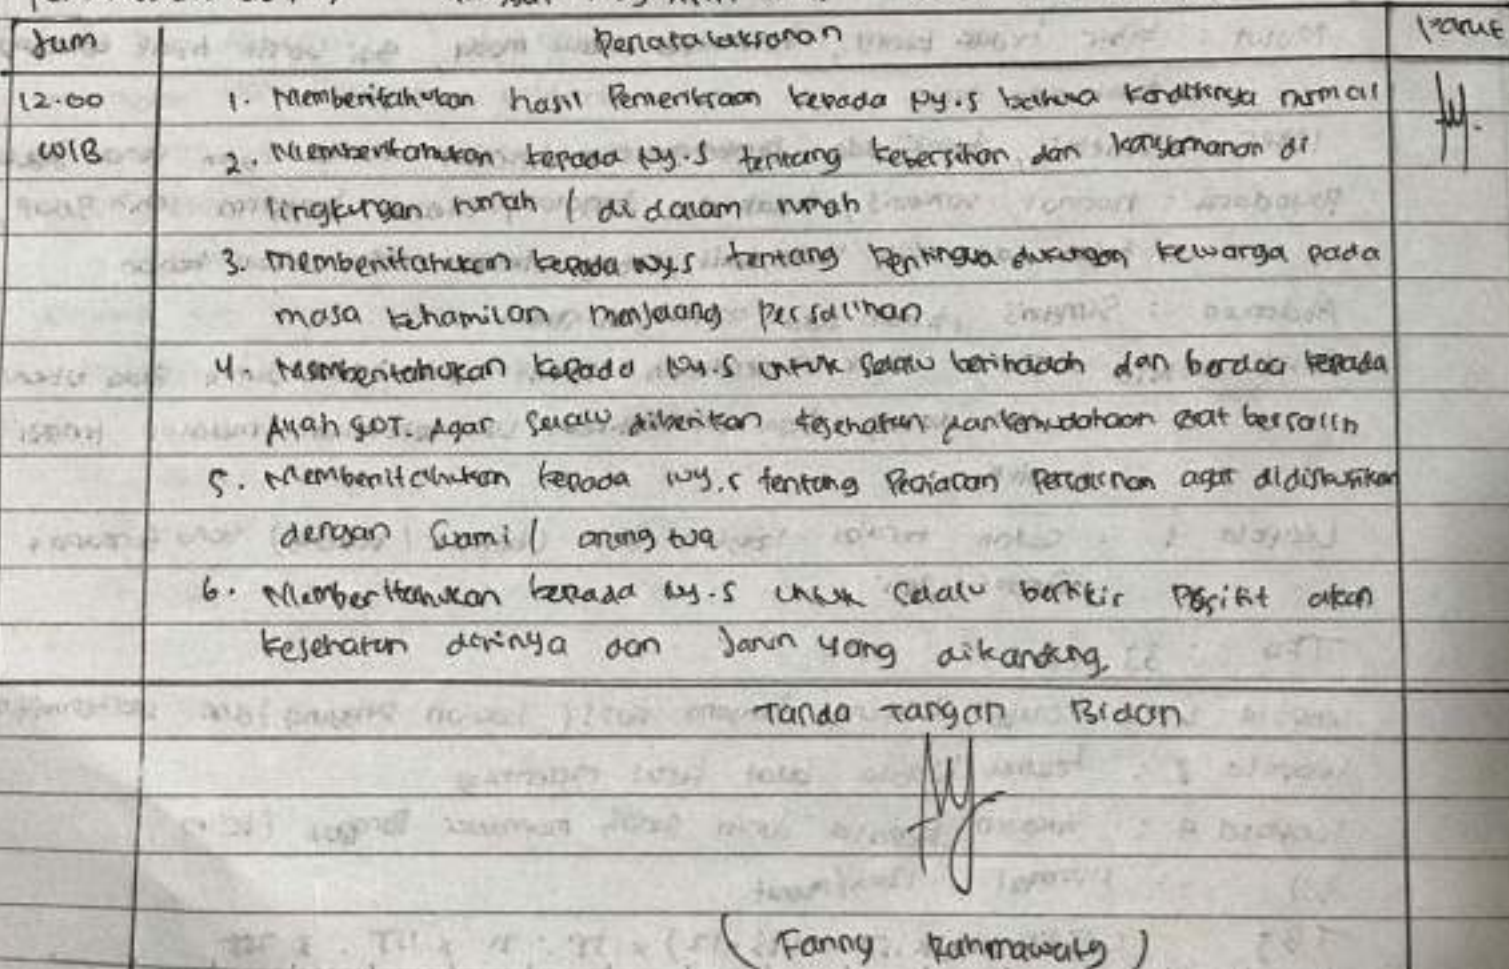 Jam Penatalaksanaan Paraf
12.00 1. Memberitahukan hasil Pemeriksaan kepada Ny.S bahwa kondisinya normal
WIB 2. Memberitahukan kepada Ny.S tentang kebersihan dan kenyamanan di
lingkungan rumah / di dalam rumah
3. Memberitahukan kepada Ny.S tentang Pentingnya dukungan keluarga pada
masa kehamilan menjelang persalinan
4. Memberitahukan kepada Ny.S untuk selalu beribadah dan berdoa kepada
Allah SWT. Agar selalu diberikan kesehatan dan kemudahan saat bersalin
5. Memberitahukan kepada Ny.S tentang Persalinan agar didiskusikan
dengan Suami / orang tua
6. Memberitahukan kepada Ny.S untuk selalu berfikir Positif akan
kesehatan dirinya dan Janin yang dikandung.
Tanda Tangan Bidan
(Fanny Rahmawaty)